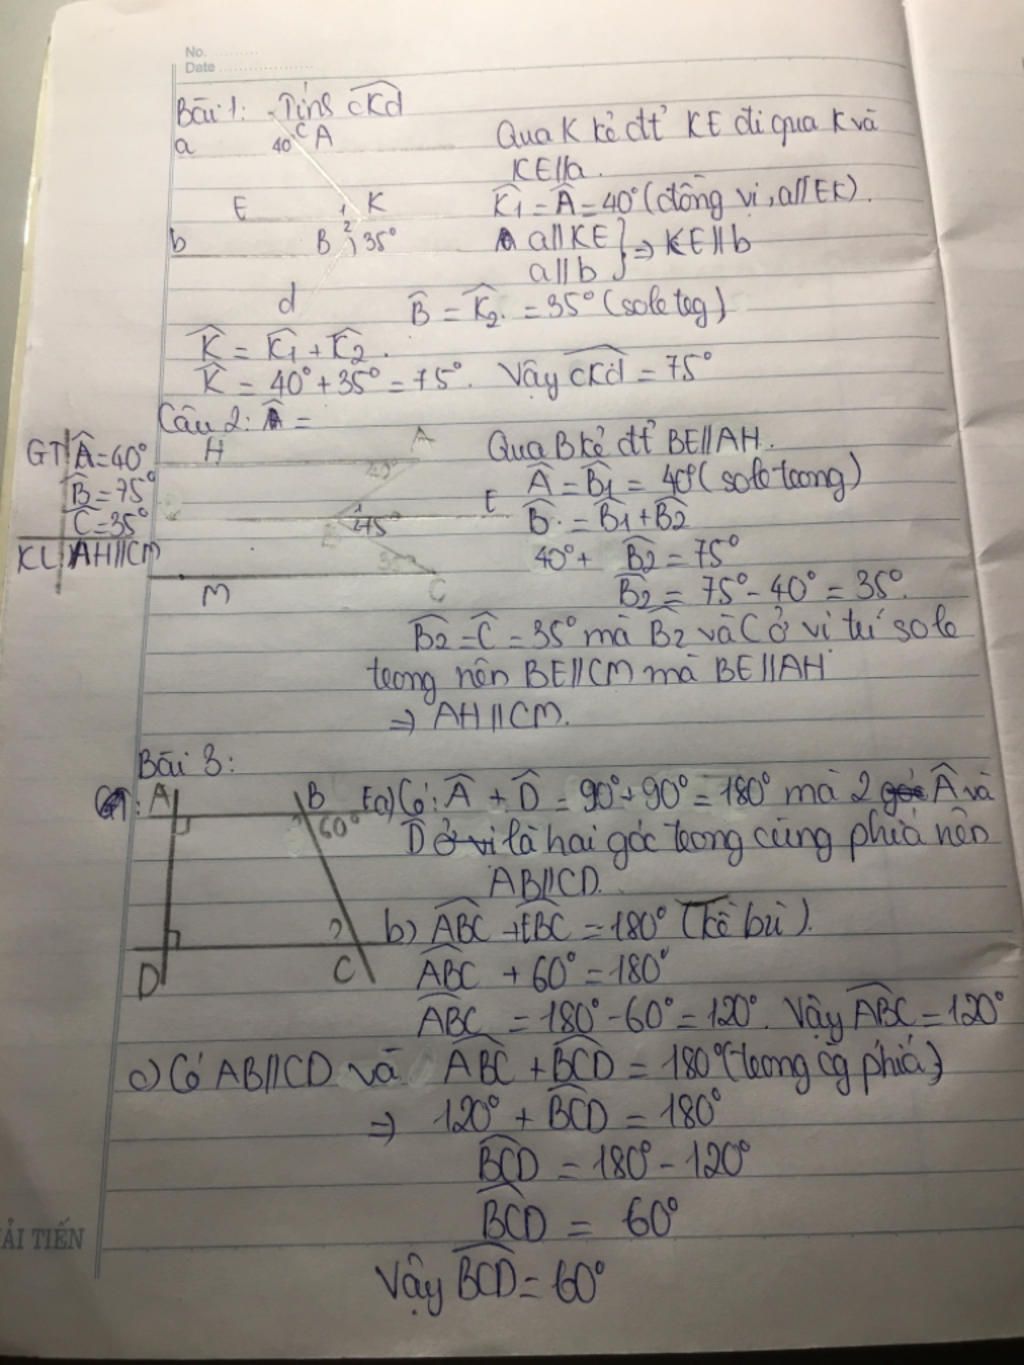 No. ............
Date .....................
Bài 1: Tính cKd
a 40° C A
Qua K kẻ đt' KE đi qua K và
KE//a.
E 1 K
K1 = A = 40° (đồng vị, a//EK).
b B 2 1 35°
a//KE } ⇒ KE//b
a//b
d
B = K2 = 35° (sole tog)
K = K1 + K2.
K = 40° + 35° = 75°. Vậy cKd = 75°
Câu 2: A =
GT A = 40°
B = 75°
C = 35°
KL AH//CM
H A
40°
E
1 75°
35°
M C
Qua B kẻ đt' BE//AH.
A = B1 = 40° (sole trong)
B = B1 + B2
40° + B2 = 75°
B2 = 75° - 40° = 35°.
B2 = C = 35° mà B2 và C ở vị trí sole
trong nên BE//CM mà BE//AH
⇒ AH//CM.
Bài 3:
A B E
60°
?
D C
a) Có: A + D = 90° + 90° = 180° mà 2 góc A và
D ở vị là hai góc trong cùng phía nên
AB//CD.
b) ABC + EBC = 180° (kề bù).
ABC + 60° = 180°
ABC = 180° - 60° = 120°. Vậy ABC = 120°
c) Có AB//CD và ABC + BCD = 180° (trong cg phía)
⇒ 120° + BCD = 180°
BCD = 180° - 120°
BCD = 60°
Vậy BCD = 60°
ẢI TIẾN